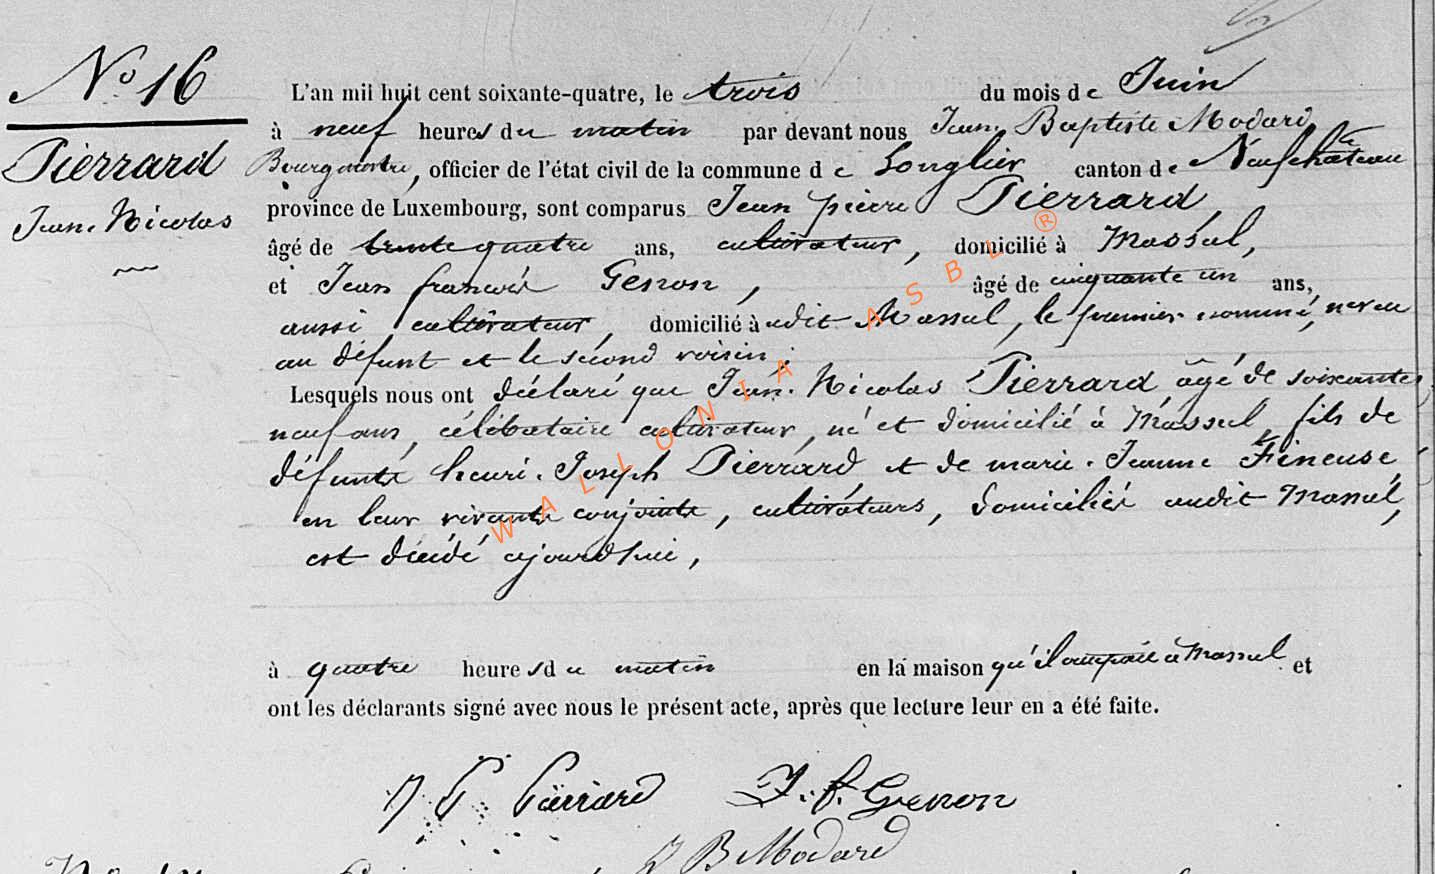 No 16
Pierrard
Jean. Nicolas
L'an mil huit cent soixante-quatre, le trois du mois de Juin
à neuf heures du matin par devant nous Jean. Baptiste Modard
Bourgmestre, officier de l'état civil de la commune de Longlier canton de Neufchâteau
province de Luxembourg, sont comparus Jean pierre Pierrard,
âgé de trente quatre ans, cultivateur, domicilié à Massul,
et Jean françois Genon, âgé de cinquante un ans,
aussi cultivateur, domicilié à udit Massul, le premier nommé, neveu
au défunt et le second voisin;
Lesquels nous ont déclaré que Jean. Nicolas Pierrard âgé de soixante
neuf ans, célibataire cultivateur, né et domicilié à Massul, fils de
défunts henri. Joseph Pierrard et de marie. Jeanne Fineuse,
en leur vivants conjoints, cultivateurs, domiciliés audit Massul,
est décédé ajourdhui,
à quatre heures du matin en la maison qu'il occupait à Massul et
ont les déclarants signé avec nous le présent acte, après que lecture leur en a été faite.
J P Pierrard J. f. Genon
J B Modard
WALLONIA ASBL ®